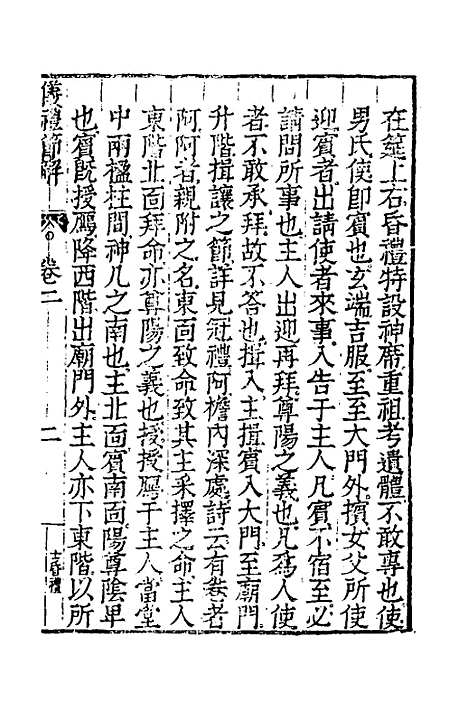 在筵上右昏禮特設神席重祖考遺體不敢專也使
男氏使即賓也玄端吉服至至大門外擯女父所使
迎賓者出請使者來事入告于主人凡賓不宿至必
請問所事也主人出迎再拜尊陽之義也凡為人使
者不敢承拜故不答也揖入主揖賓入大門至廟門
升階揖讓之節詳見冠禮阿檐內深處詩云有卷者
阿阿者親附之名東面致命致其主采擇之命主人
東階北面拜命亦尊陽之義也授授鴈于主人當堂
中兩楹柱間神几之南也主北面賓南面陽尊陰卑
也賓既授鴈降西階出廟門外主人亦下東階以所
儀禮節解
卷二
二
士昏禮